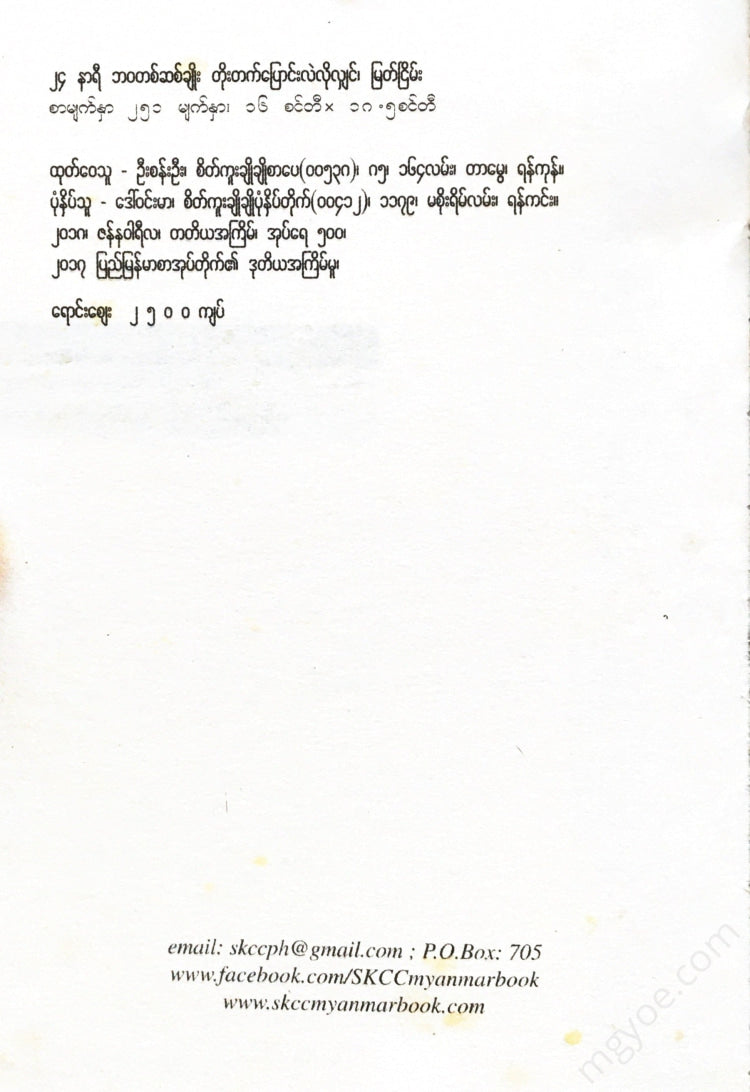 ၂၄ နာရီ ဘဝတစ်ဆစ်ချိုး တိုးတက်ပြောင်းလဲလိုလျှင်၊ မြတ်ငြိမ်း
စာမျက်နှာ ၂၅၁ မျက်နှာ၊ ၁၆ စင်တီ× ၁၈.၅စင်တီ
ထုတ်ဝေသူ - ဦးစန်းဦး၊ စိတ်ကူးချိုချိုစာပေ(၀၀၅၃၈)၊ ၈၅၊ ၁၆၄လမ်း၊ တာမွေ၊ ရန်ကုန်။
ပုံနှိပ်သူ - ဒေါ်ဝင်းမာ၊ စိတ်ကူးချိုချိုပုံနှိပ်တိုက်(၀၀၄၁၂)၊ ၁၁၇၉၊ မစိုးရိမ်လမ်း၊ ရန်ကင်း။
၂၀၁၈၊ ဇန်နဝါရီလ၊ တတိယအကြိမ်၊ အုပ်ရေ ၅၀၀၊
၂၀၁၇ ပြည်မြန်မာစာအုပ်တိုက်၏ ဒုတိယအကြိမ်မူ၊
ရောင်းဈေး ၂ ၅ ၀ ၀ ကျပ်
email: skccph@gmail.com ; P.O.Box: 705
www.facebook.com/SKCCmyanmarbook
www.skccmyanmarbook.com
mgyoe.com